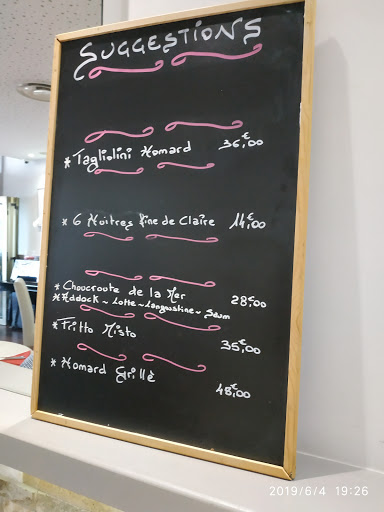 SUGGESTIONS
* Tagliolini Homard 36,€00
* 6 Huitres Fine de Claire 14,€00
* Choucroute de la Mer
* Addock ~ Lotte ~ Langoustine ~ Saum 28€00
* Fritto Misto 35,€00
* Homard Grillè 48,€00
2019/6/4 19:26